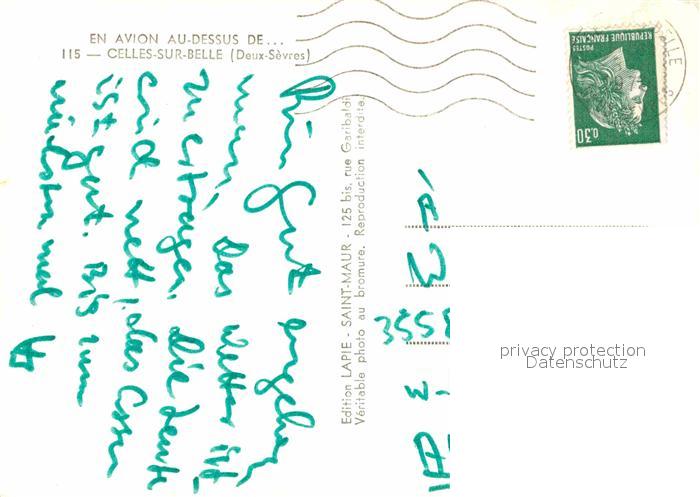 EN AVION AU-DESSUS DE...
115 — CELLES-SUR-BELLE (Deux-Sèvres)
Bin gut
mm, das Wetter ist
zu ertragen, die Leute
sind nett, das Essen
ist gut. Bis zum
nächsten mal
Edition LAPIE - SAINT-MAUR - 125 bis, rue Garibaldi
Véritable photo au bromure. Reproduction interdite.
POSTES
REPUBLIQUE FRANÇAISE
0.30
BELLE
355
privacy protection
Datenschutz